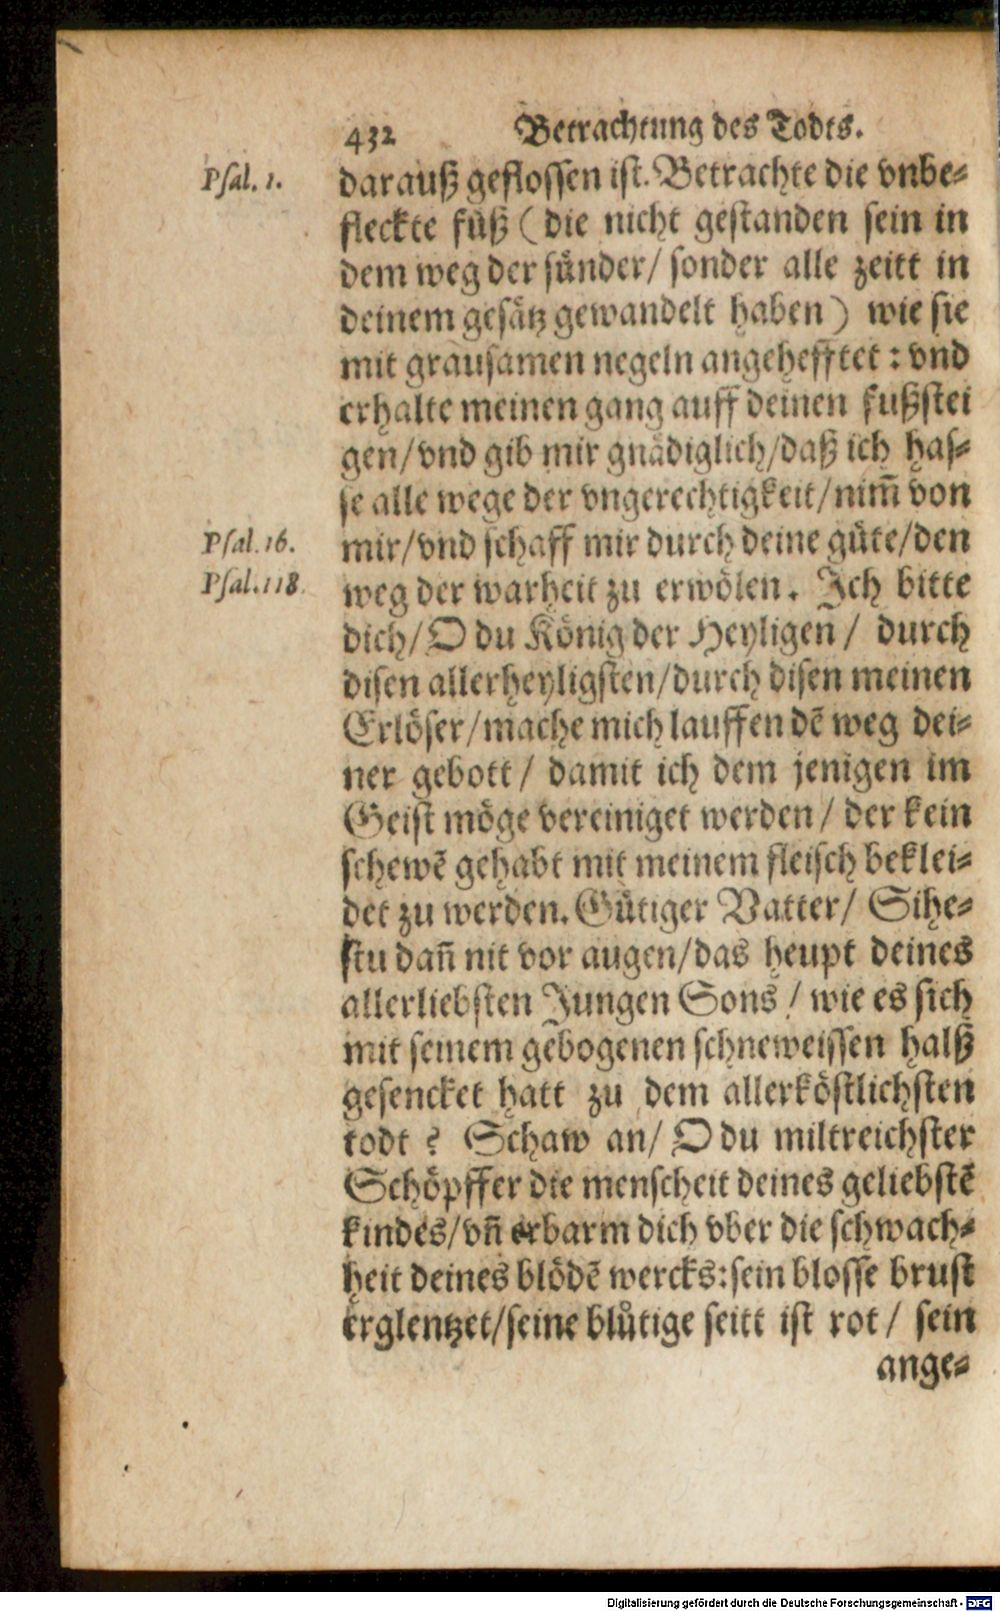 432 Betrachtung des Todts.
Psal. 1.
darauß geflossen ist. Betrachte die vnbe-
fleckte füß (die nicht gestanden sein in
dem weg der sünder/ sonder alle zeitt in
deinem gesätz gewandelt haben) wie sie
mit grausamen negeln angehefftet: vnd
erhalte meinen gang auff deinen fußstei
gen/vnd gib mir gnädiglich/daß ich has-
se alle wege der vngerechtigkeit/nim̄ von
Psal. 16.
mir/vnd schaff mir durch deine güte/den
Psal. 118.
weg der warheit zu erwölen. Ich bitte
dich/O du König der Heyligen/ durch
disen allerheyligsten/durch disen meinen
Erlöser/mache mich lauffen dē weg dei-
ner gebott/ damit ich dem jenigen im
Geist möge vereiniget werden/ der kein
schewē gehabt mit meinem fleisch beklei-
det zu werden. Gütiger Vatter/ Sihe-
stu dañ nit vor augen/das heupt deines
allerliebsten Jungen Sons/ wie es sich
mit seinem gebogenen schneweissen halß
gesencket hatt zu dem allerköstlichsten
todt? Schaw an/ O du miltreichster
Schöpffer die menscheit deines geliebstē
kindes/vñ erbarm dich vber die schwach-
heit deines blödē wercks:sein blosse brust
erglentzet/seine blůtige seitt ist rot/ sein
ange-
Digitalisierung gefördert durch die Deutsche Forschungsgemeinschaft - DFG